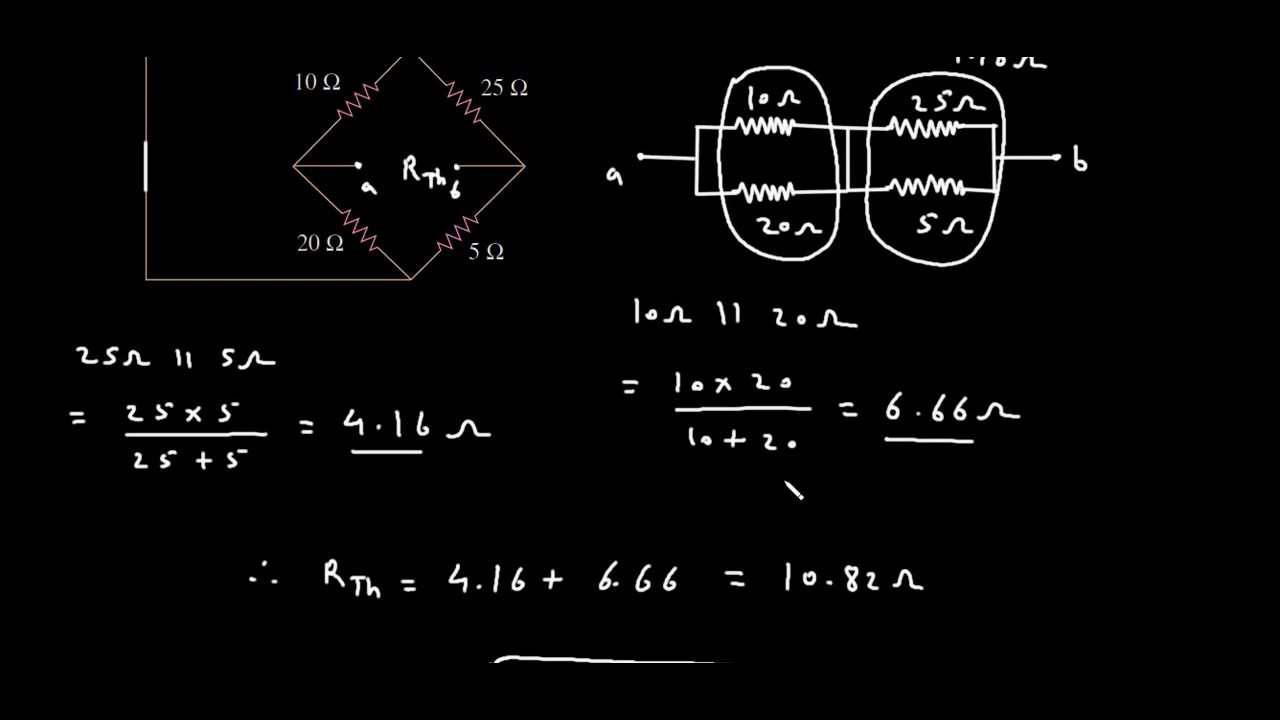 10 Ω
25 Ω
a R_Th b
20 Ω
5 Ω
10Ω 25Ω
a b
20Ω 5Ω
10Ω || 20Ω
= 10 × 20 / 10 + 20 = 6.66Ω
25Ω || 5Ω
= 25 × 5 / 25 + 5 = 4.16 Ω
∴ R_Th = 4.16 + 6.66 = 10.82 Ω